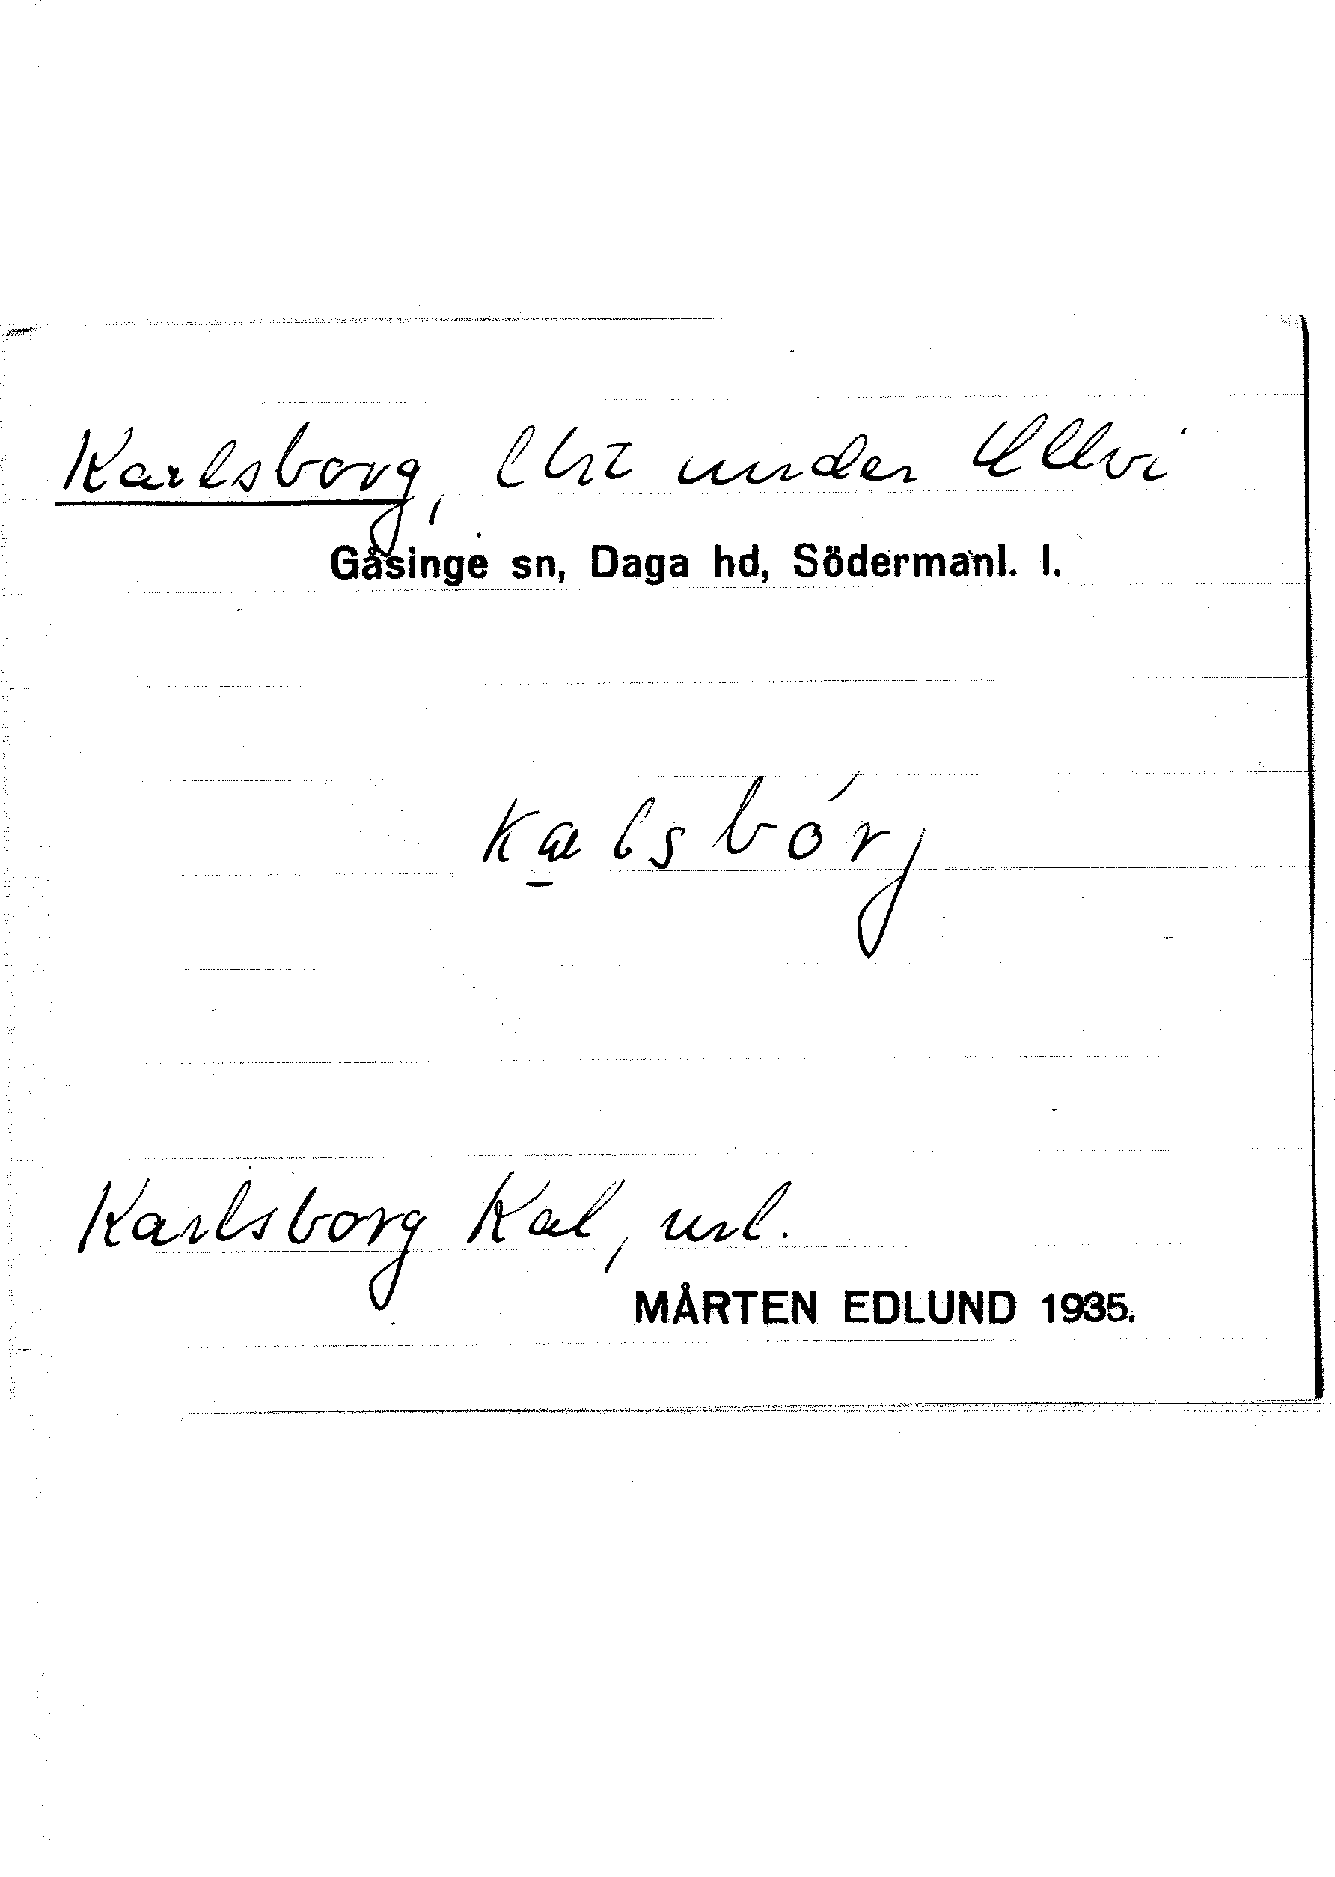 Karlsborg, lht under Ullvi
Gåsinge sn, Daga hd, Södermanl. l.
Kalsbórj
Karlsborg Kal, url.
MÅRTEN EDLUND 1935.